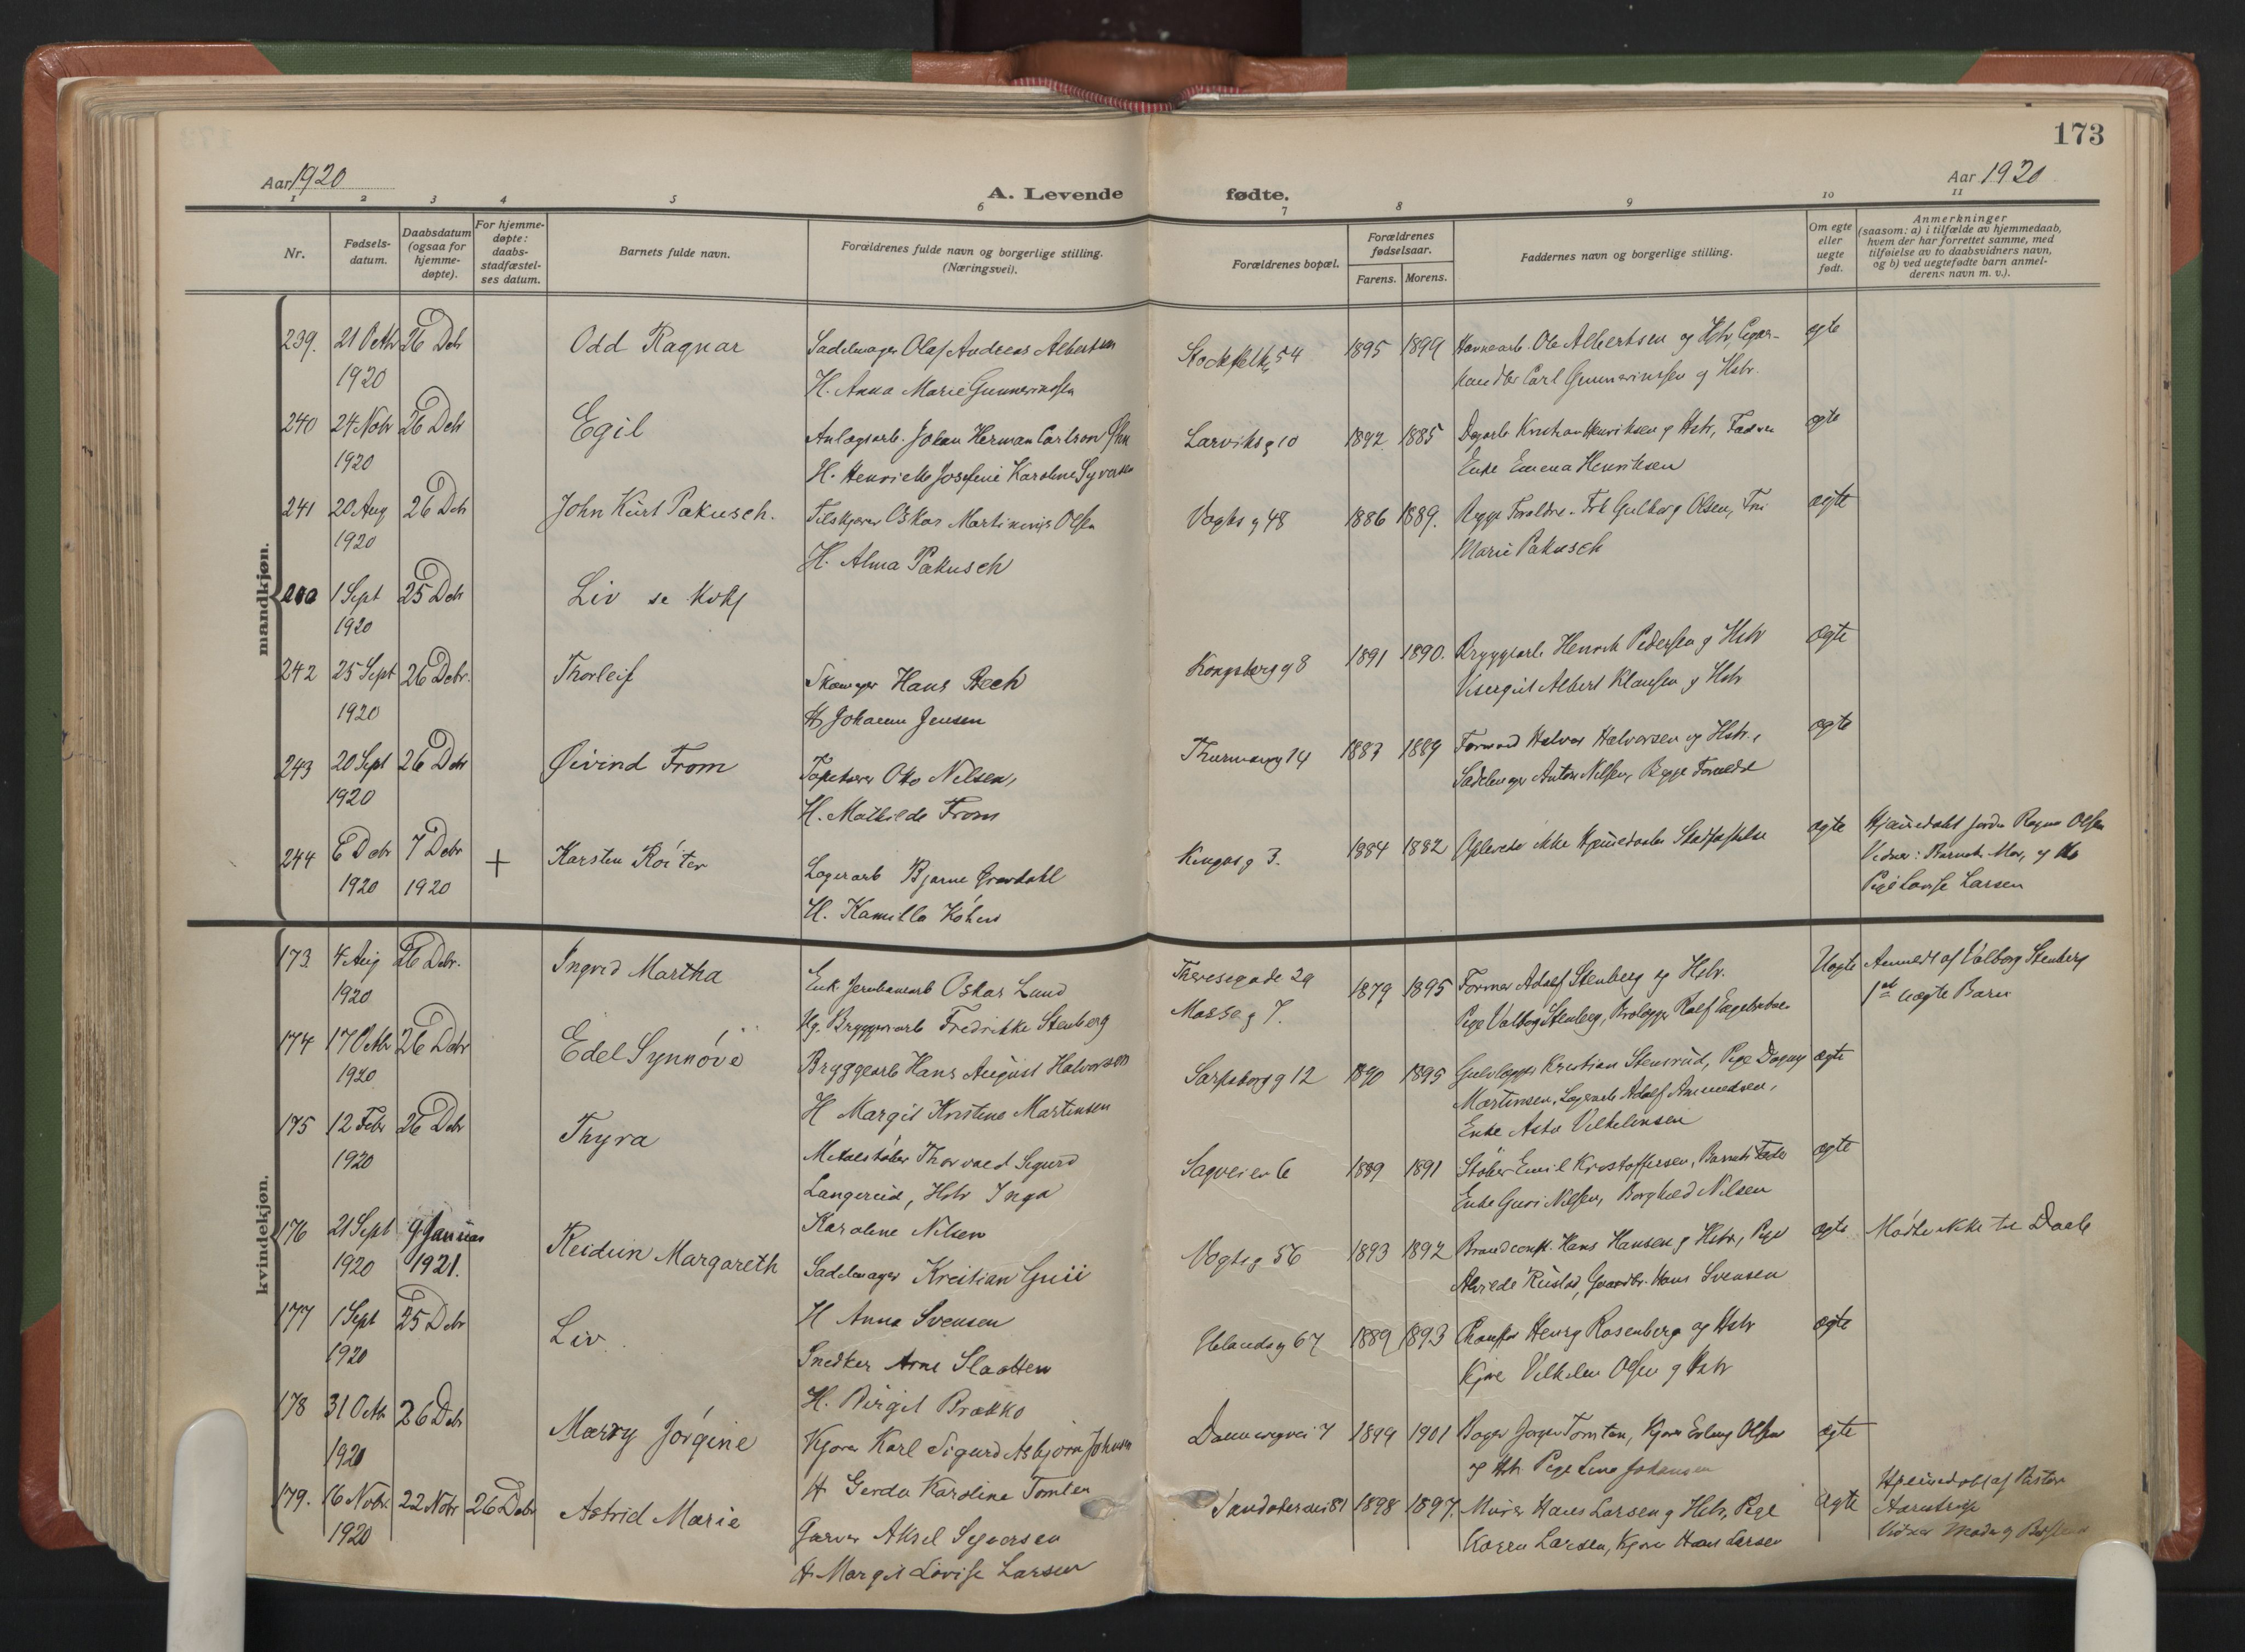 173
Aar 1920
Aar 1920
A. Levende fødte.
1 2 3 4 5 6 7 8 9 10 11
Nr.
Fødsels-
datum.
Daabsdatum
(ogsaa for
hjemme-
døpte).
For hjemme-
døpte:
daabs-
stadfæstel-
ses datum.
Barnets fulde navn.
Forældrenes fulde navn og borgerlige stilling.
(Næringsvei).
Forældrenes bopæl.
Forældrenes
fødselsaar.
Farens. Morens.
Faddernes navn og borgerlige stilling.
Om egte
eller
uegte
født.
Anmerkninger
(saasom: a) i tilfælde av hjemmedaab,
hvem der har forrettet samme, med
tilføielse av to daabsvidners navn,
og b) ved uegtefødte barn anmel-
derens navn m. v.).
mandkjøn.
239. 21 Octbr 26 Debr Odd Ragnar Sadelmager Olaf Andreas Albertsen Stockflethg 54 1895 1899 Havnearb. Ole Albertsen og Hstr, Cigar- egte
1920 H. Anna Marie Gunnerinssen handler Carl Gunnerinssen og Hstr.
240 24 Nobr 26 Debr Egil Anlægsarb. Johan Herman Carlson Larviksg 10 1892 1885 Dagarb Kristian Henriksen og Hstr, Faderen egte
1920 H. Henriette Josefine Karoline Syversen Enke Emma Henriksen
241 20 Aug 26 Debr John Kurt Pakusch. Oskar Martinius Olsen Vogtsg 48 1886 1889. Begge Forældre. Frk Gulborg Olsen, Fru egte
1920 H. Alma Pakusch Marie Pakusch
1 Sept 25 Debr Liv se Kvkj
1920
242 25 Sept 26 Debr. Thorleif Skomager Hans Bech Kongsbergg 8 1891 1890. Bryggearb Henrik Pedersen og Hstr egte
1920 H Johanne Jensen Visergut Albert Klausen og Hstr
243 20 Sept 26 Debr Øivind From Tapetserer Otto Nilsen, Thurmannsg 14 1883 1889 Formand Halvor Halvorsen og Hstr, egte
1920 H. Mathilde From Sadelmager Anton Nilsen, Begge Forældre
244 6 Debr 7 Debr + Karsten Lagerarb Bjarne Grøndahl Kingosg 3. 1884 1882 Oplevede ikke Hjemmedaabs Stadfæstelse egte Hjemmedøbt Jordm Ragna Olsen
1920 1920 H. Kamilla Vidner: Barnets Mor, og
Pige Lovise Larsen
kvindekjøn.
173. 4 Aug 26 Debr. Ingrid Martha Enk. Jernbanearb Oskar Lund Theresegade 29 1879 1895 Former Adolf Stenberg og Hstr. Uegte Anmeldt af Valborg Stenberg
1920 Ug. Bryggeriarb Fredrikke Stenberg Mosseg 7. Pige Valborg Stenberg, Brolægger Rolf 1ste uægte Barn
174 17 Octbr 26 Debr Edel Synnöve Bryggearb Hans August Halvorsen Sarpsborgg 12 1890 1895 Gulvlægger Kristian Stensrud, Pige Dagny egte
1920 H Margit Kristine Martinsen Martinsen, Lagerarb Adolf Amundsen,
Enke Asta Vilhelmsen
175 12 Febr 26 Debr Thyra Metalstøber Thorvald Sigurd Sagveien 6 1889 1891 Støber Emil Kristoffersen, Barnets Fader egte
1920 Langerud, Hstr Inga Enke Guri Nilsen, Borghild Nilsen
Karoline Nilsen
176 21 Sept 9 Januar Reidun Margareth Sadelmager Kristian Vogtsg 56 1893 1892 Brandconst. Hans Hansen og Hstr, Pige egte Mødte ikke til Daab
1920 1921. H Anna Svensen Alvilde Rustad, Hans Svensen
177 1 Sept 25 Debr Liv. Snedker Arne Slaatten 67 1889 1893 Henry Rosenberg og Hstr egte
1920 H. Birgit Brække Kjører Vilhelm Olsen og Hstr
178 31 Octbr 26 Debr Marry Jörgine Kjører Karl Sigurd Asbjørn Johnsen 7 1899 1901 Bager Jørgen Tomten, Kjører Erling Olsen egte
1920 H Gerda Karoline Tomten og Hstr Pige Lina Johansen
179. 16 Nobr. 22 Nobr 26 Debr Astrid Marie Garver Aksel Syversen Sandakerveien 81 1898 1897. Murer Hans Larsen og Hstr, Pige egte Hjemmedøbt af Pastor
1920 H. Margit Lovise Larsen Karen Larsen, Kjører Hans Larsen
Vidner